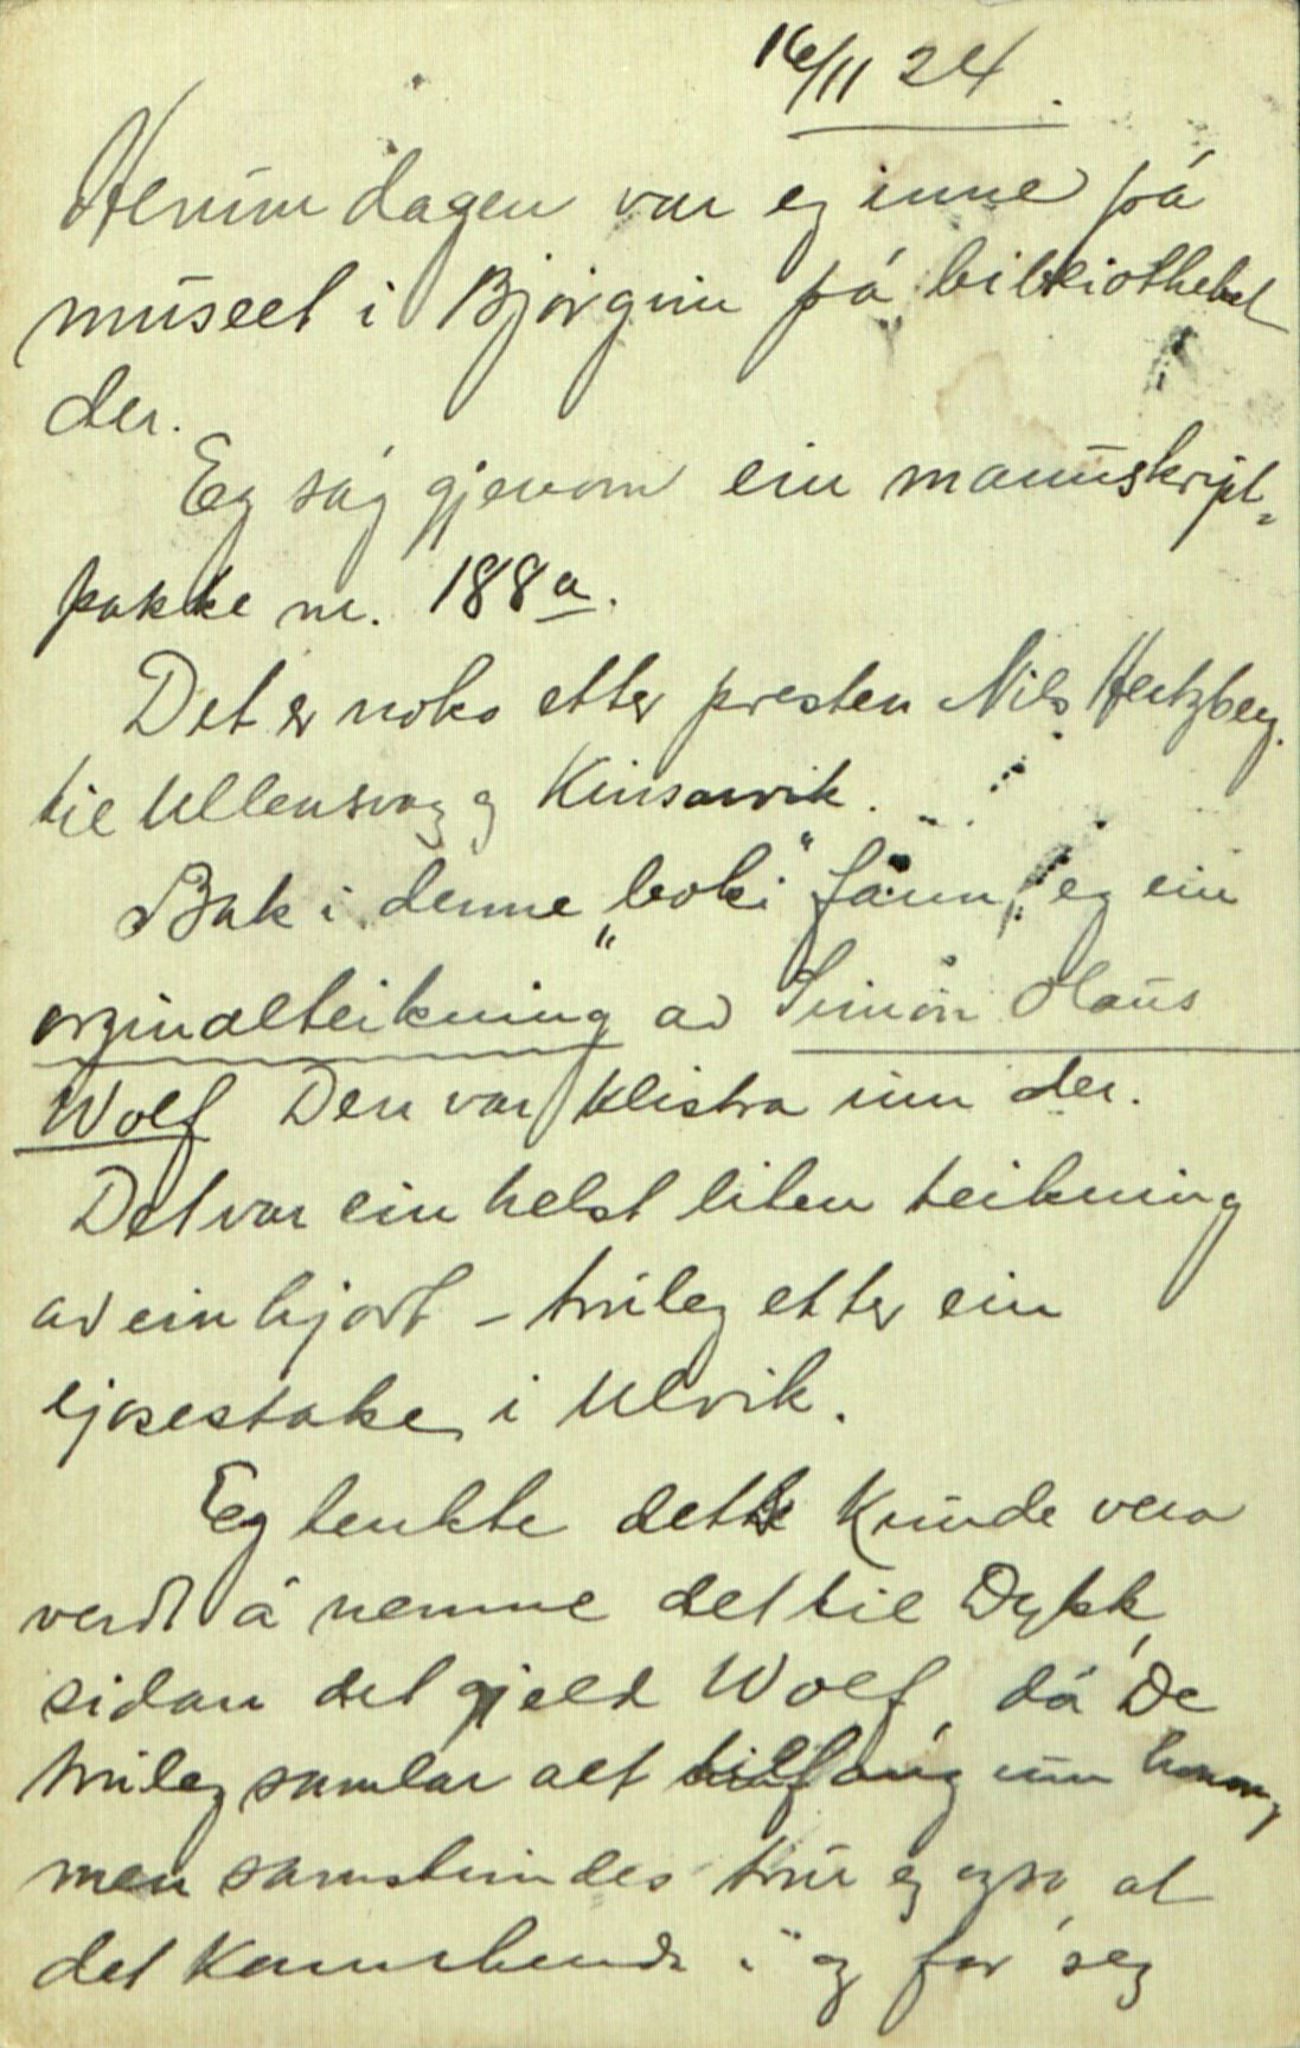 16/11 24.
Herum dagen var eg inne på
museet i Bjørgvin på bibliotheket
der.
Eg såg gjenom ein manuskript-
pakke nr. 188a.
Det er noko etter presten Nils Hertzberg
til Ullensvang og Kinsarvik.
Bak i denne „boki“ fann eg ein
orginalteikning av Simon Olaus
Wolf Den var klistra inn der.
Det var ein helst liten teikning
av ein hjort – truleg etter ein
ljosestake i Ulvik.
Eg tenkte dette kunde vera
verdt å nemne det til Dykk,
sidan det gjeld Wolf, då De
truleg samlar alt tilfang um honom,
men samstundes trur eg ogso, at
det kannhenda i og for seg